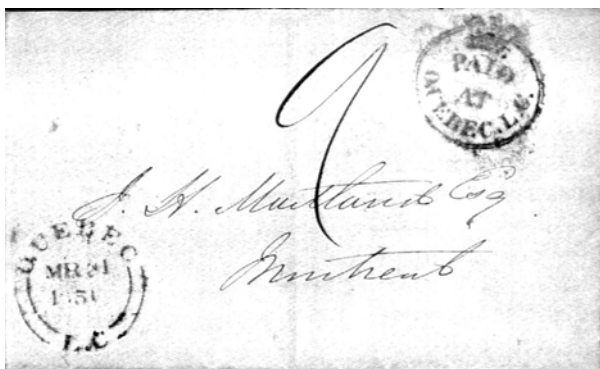 PAID
AT
QUEBEC.L.C.
9
J. H. Maitland Esq
Montreal
QUEBEC
MR 31
L.C